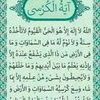 آية الكرسي
اللَّهُ لَا إِلَٰهَ إِلَّا هُوَ الْحَيُّ الْقَيُّومُ لَا تَأْخُذُهُ
سِنَةٌ وَلَا نَوْمٌ لَهُ مَا فِي السَّمَاوَاتِ وَمَا
فِي الْأَرْضِ مَنْ ذَا الَّذِي يَشْفَعُ عِنْدَهُ إِلَّا
بِإِذْنِهِ يَعْلَمُ مَا بَيْنَ أَيْدِيهِمْ وَمَا خَلْفَهُمْ
وَلَا يُحِيطُونَ بِشَيْءٍ مِنْ عِلْمِهِ إِلَّا بِمَا شَاءَ
وَسِعَ كُرْسِيُّهُ السَّمَاوَاتِ وَالْأَرْضَ